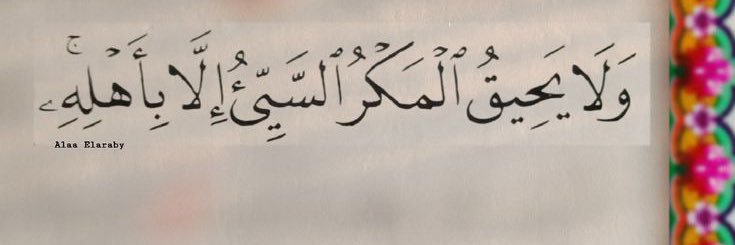 وَلَا يَحِيقُ ٱلْمَكْرُ ٱلسَّيِّئُ إِلَّا بِأَهْلِهِۦۚ
Alaa Elaraby